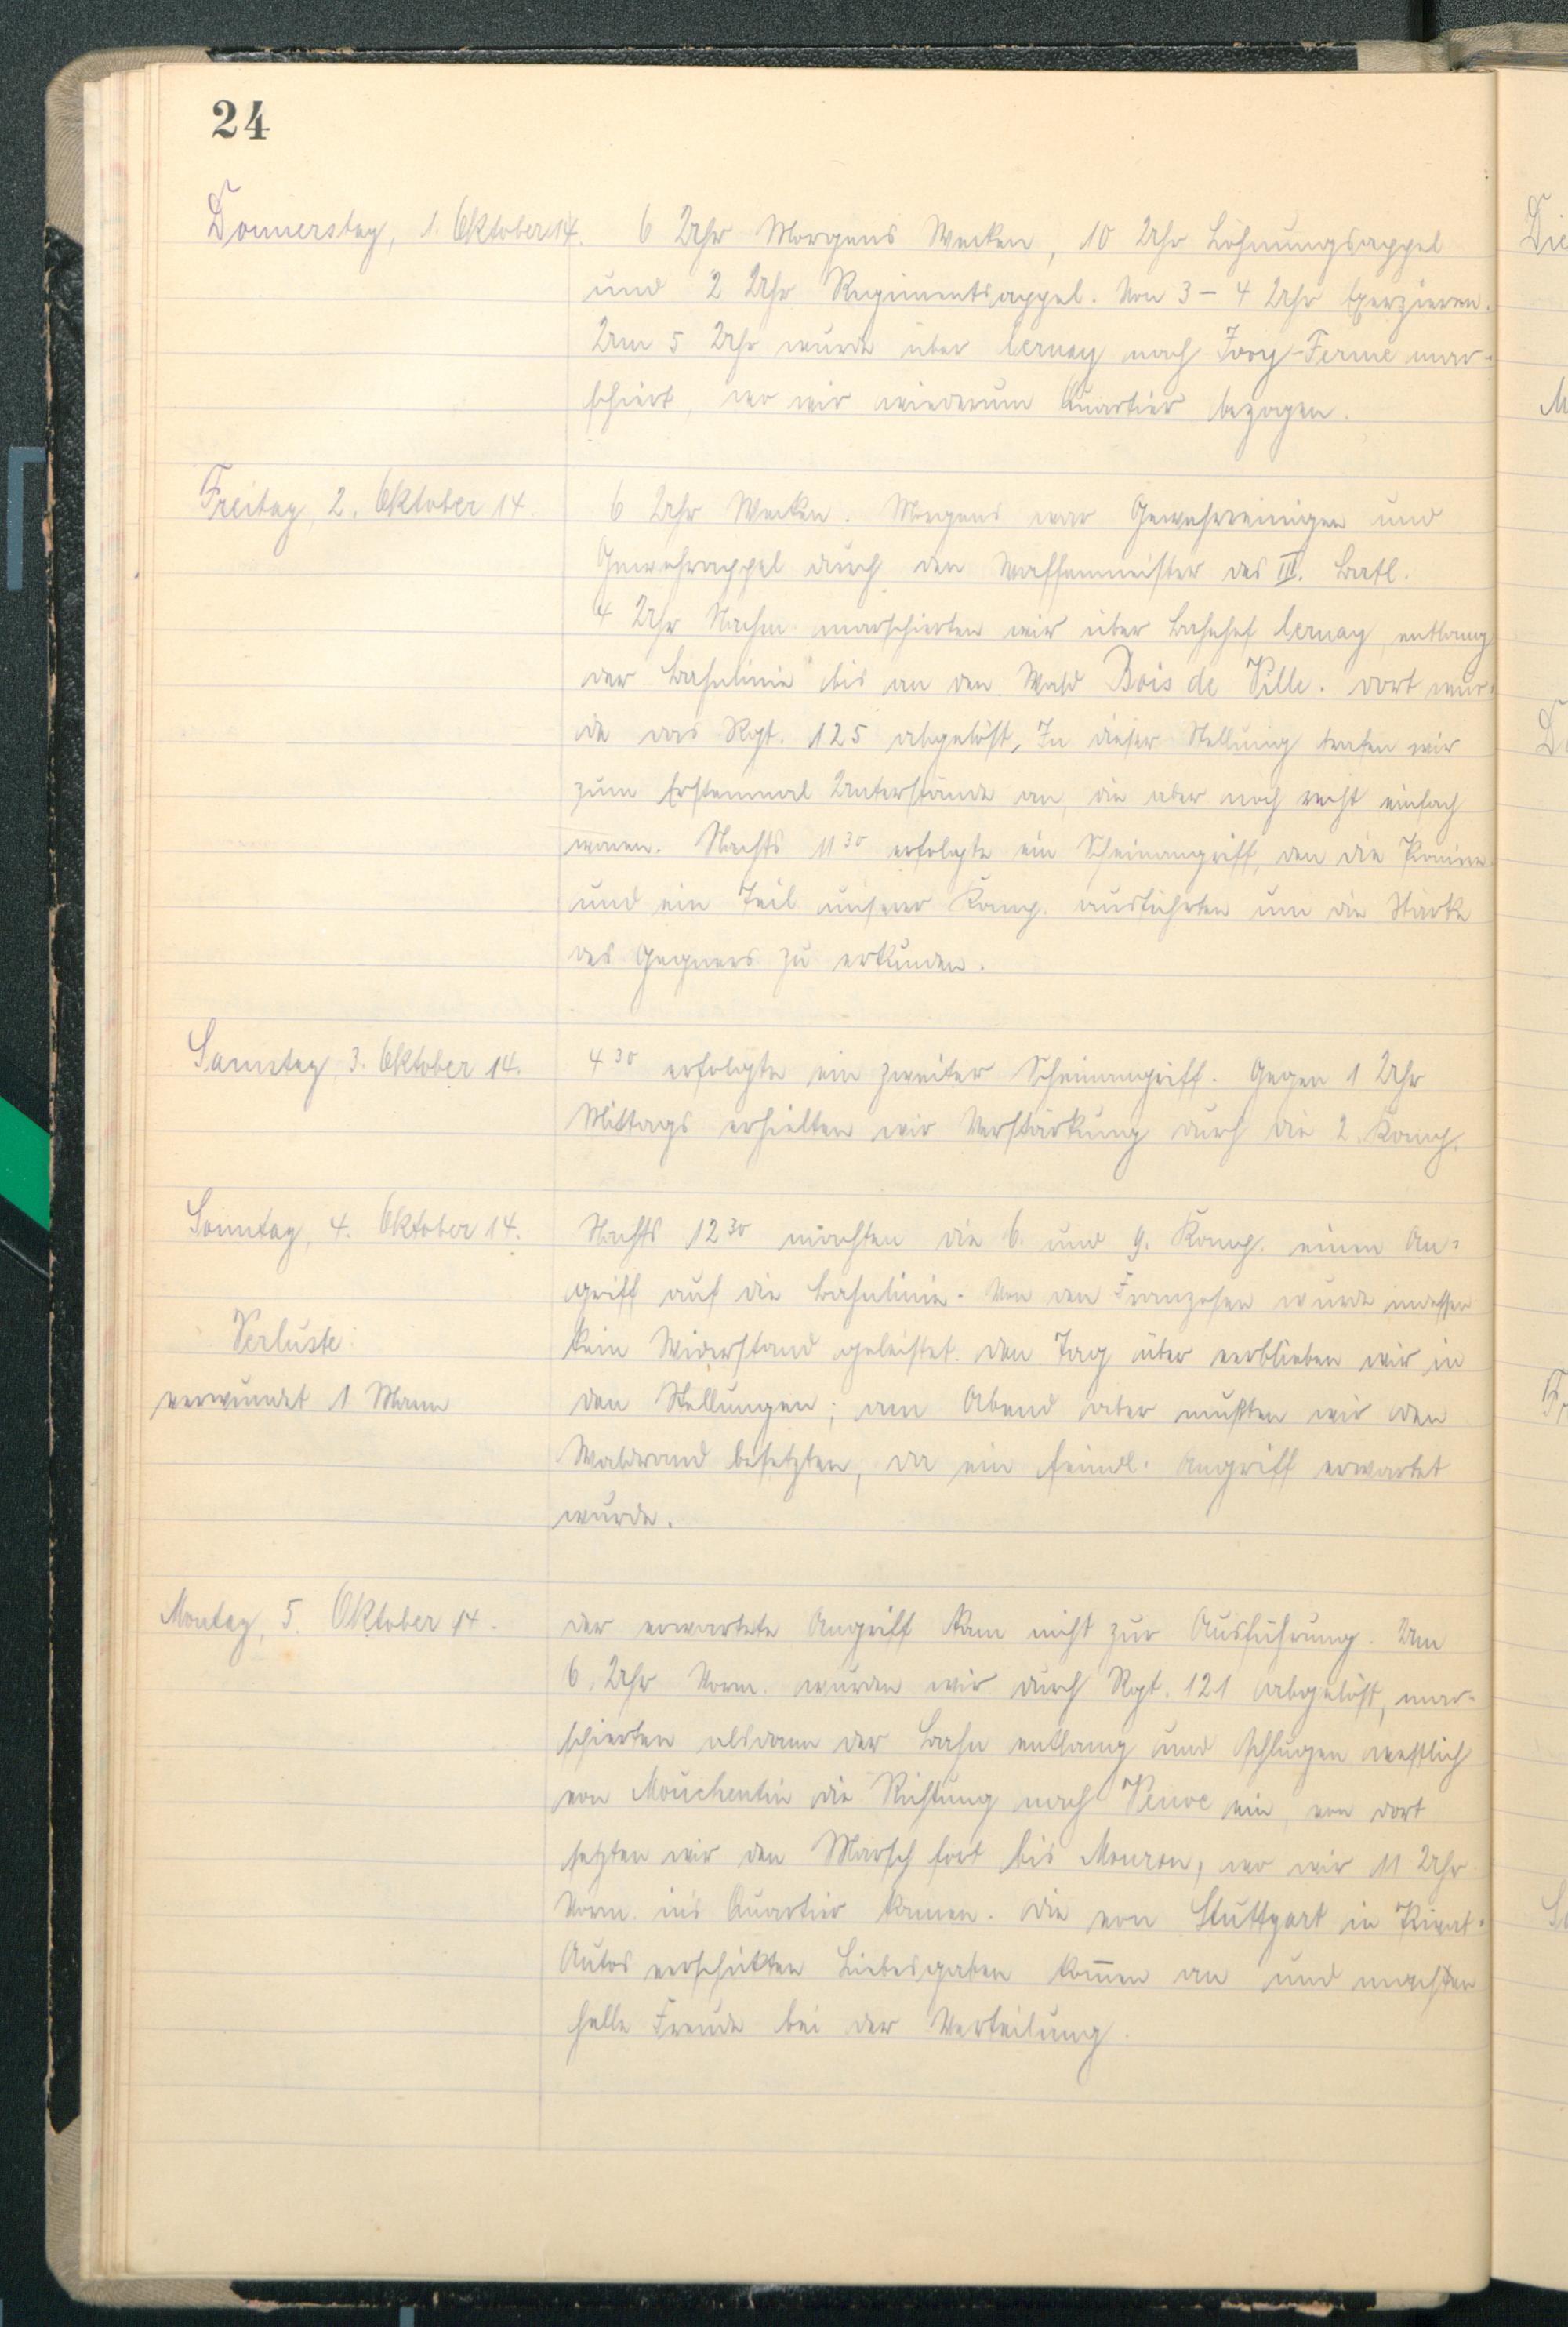 24
Donnerstag, 1. Oktober 14. 6 Uhr Morgens Wecken, 10 Uhr Löhnungsappel
und 2 Uhr Regimentsappel. Von 3 – 4 Uhr Exerzieren.
Um 5 Uhr wurde über Cernay nach Jvoy-Ferme mar-
schiert, wo wir wiederum Quartier bezogen.
Freitag, 2. Oktober 14. 6 Uhr Wecken. Morgens war Gewehrreinigen und
Gewehrappel durch den Waffenmeister des III. Batl.
4 Uhr Nachm. marschierten wir über Bahnhof Cernay, entlang
der Bahnlinie bis an den Wald Bois de Ville. Dort wur-
de das Rgt. 125 abgelöst, In dieser Stellung trafen wir
zum Erstenmal Unterstände an, die aber noch recht einfach
waren. Nachts 11 30 erfolgte ein Scheinangriff, den die Pioniere
und ein Teil unserer Komp. ausführten um die Stärke
des Gegners zu erkunden.
Samstag, 3. Oktober 14. 4 30 erfolgte ein zweiter Scheinangriff. Gegen 1 Uhr
Mittags erhielten wir Verstärkung durch die 2. Komp.
Sonntag, 4. Oktober 14. Nachts 12 30 machten die 6. und 9. Komp. einen An-
griff auf die Bahnlinie. Von den Franzosen wurde indessen
Verluste: kein Widerstand geleistet. Den Tag über verblieben wir in
verwundet 1 Mann den Stellungen; am Abend aber mußten wir den
Waldrand besetzten, da ein feindl. Angriff erwartet
wurde.
Montag, 5. Oktober 14. Der erwartete Angriff kam nicht zur Ausführung. Um
6 Uhr Vorm. wurden wir durch Rgt. 121 abgelöst, mar-
schierten alsdann der Bahn entlang und schlugen westlich
von Mouchentin die Richtung nach ein, von dort
setzten wir den Marsch fort bis Mouron, wo wir 11 Uhr
Vorm. ins Quartier kamen. Die von Stuttgart in Privat-
Autos verschikten Liebesgaben komen an und machten
helle Freude bei der Verteilung.